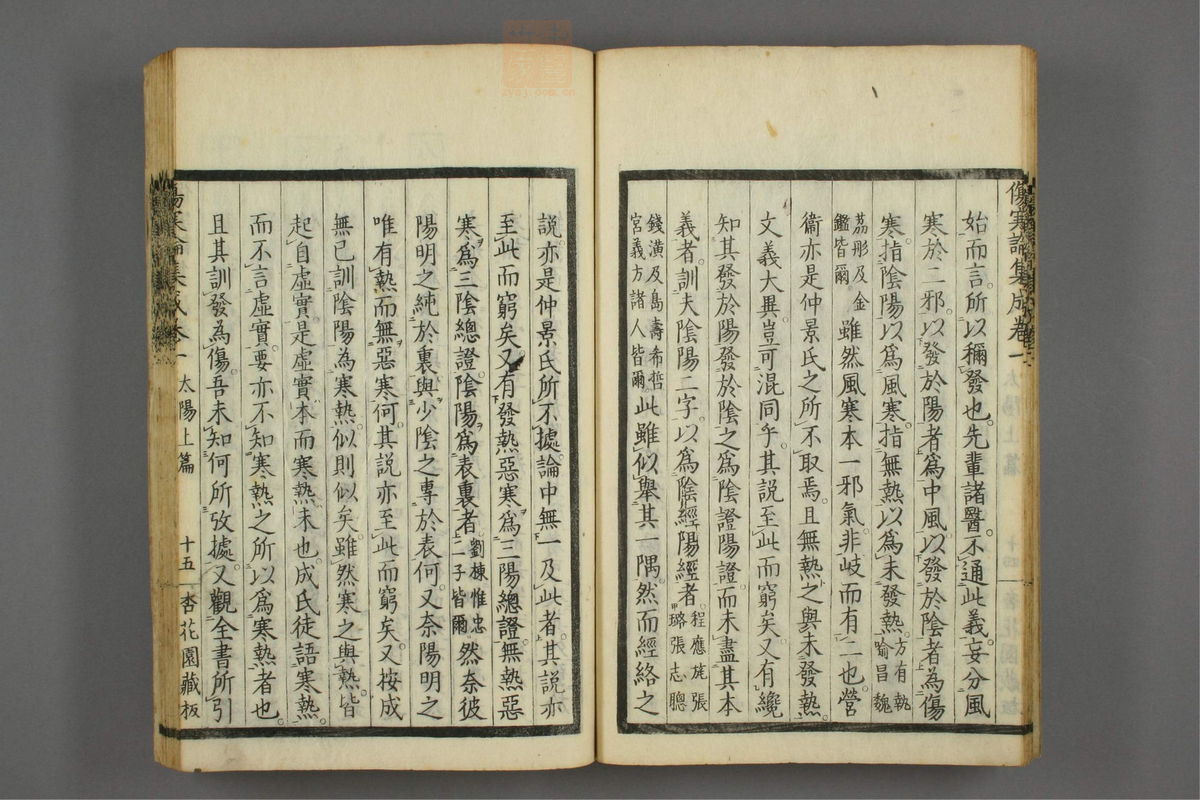 傷寒論集成卷一
始而言。所以稱發也。先輩諸醫。不通此義。妄分風
寒於二邪。以發於陽者爲中風。以發於陰者為傷
寒。指陰陽以爲風寒。指無熱以爲未發熱。方有執喻昌魏
荔彤及金鑑皆爾雖然風寒本一邪氣。非岐而有二也。營
衞亦是仲景氏之所不取焉。且無熱之與未發熱。
文義大異。豈可混同乎。其說至此而窮矣。又有纔
知其發於陽發於陰之爲陰證陽證。而未盡其本
義者。訓夫陰陽二字。以爲陰經陽經者。程應旄張璐張志聰
錢潢及島壽希哲宮義方諸人皆爾。此雖似舉其一隅。然而經絡之
說。亦是仲景氏所不據。論中無一及此者。其說亦
至此而窮矣。又有發熱惡寒爲三陽總證。無熱惡
寒爲三陰總證。陰陽爲表裏者。劉棟惟忠二子皆爾然奈彼
陽明之純於裏。與少陰之專於表何。又奈陽明之
唯有熱而無惡寒何。其說亦至此而窮矣。又按成
無已訓陰陽為寒熱。似則似矣。雖然寒之與熱。皆
起自虛實。是虛實本而寒熱末也。成氏徒語寒熱。
而不言虛實。要亦不知寒熱之所以爲寒熱者也。
且其訓發為傷。吾未知何所攷據。又觀全書所引
太陽上篇 十五 杏花園藏板